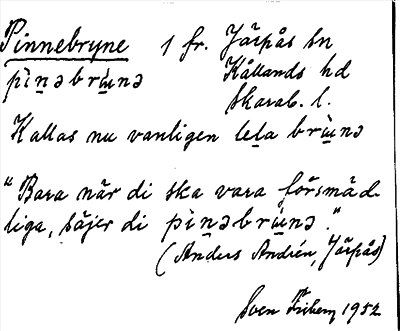 Pinnebryne 1 fr. Järpås sn
pìnəbrùnə Kållands hd
Skarab. l.
Kallas nu vanligen leta brùnə
"Bara när di ska vara försmäd-
liga, säjer di pìnəbrùnə."
(Anders Andrén, Järpås)
Sven Friberg 1952